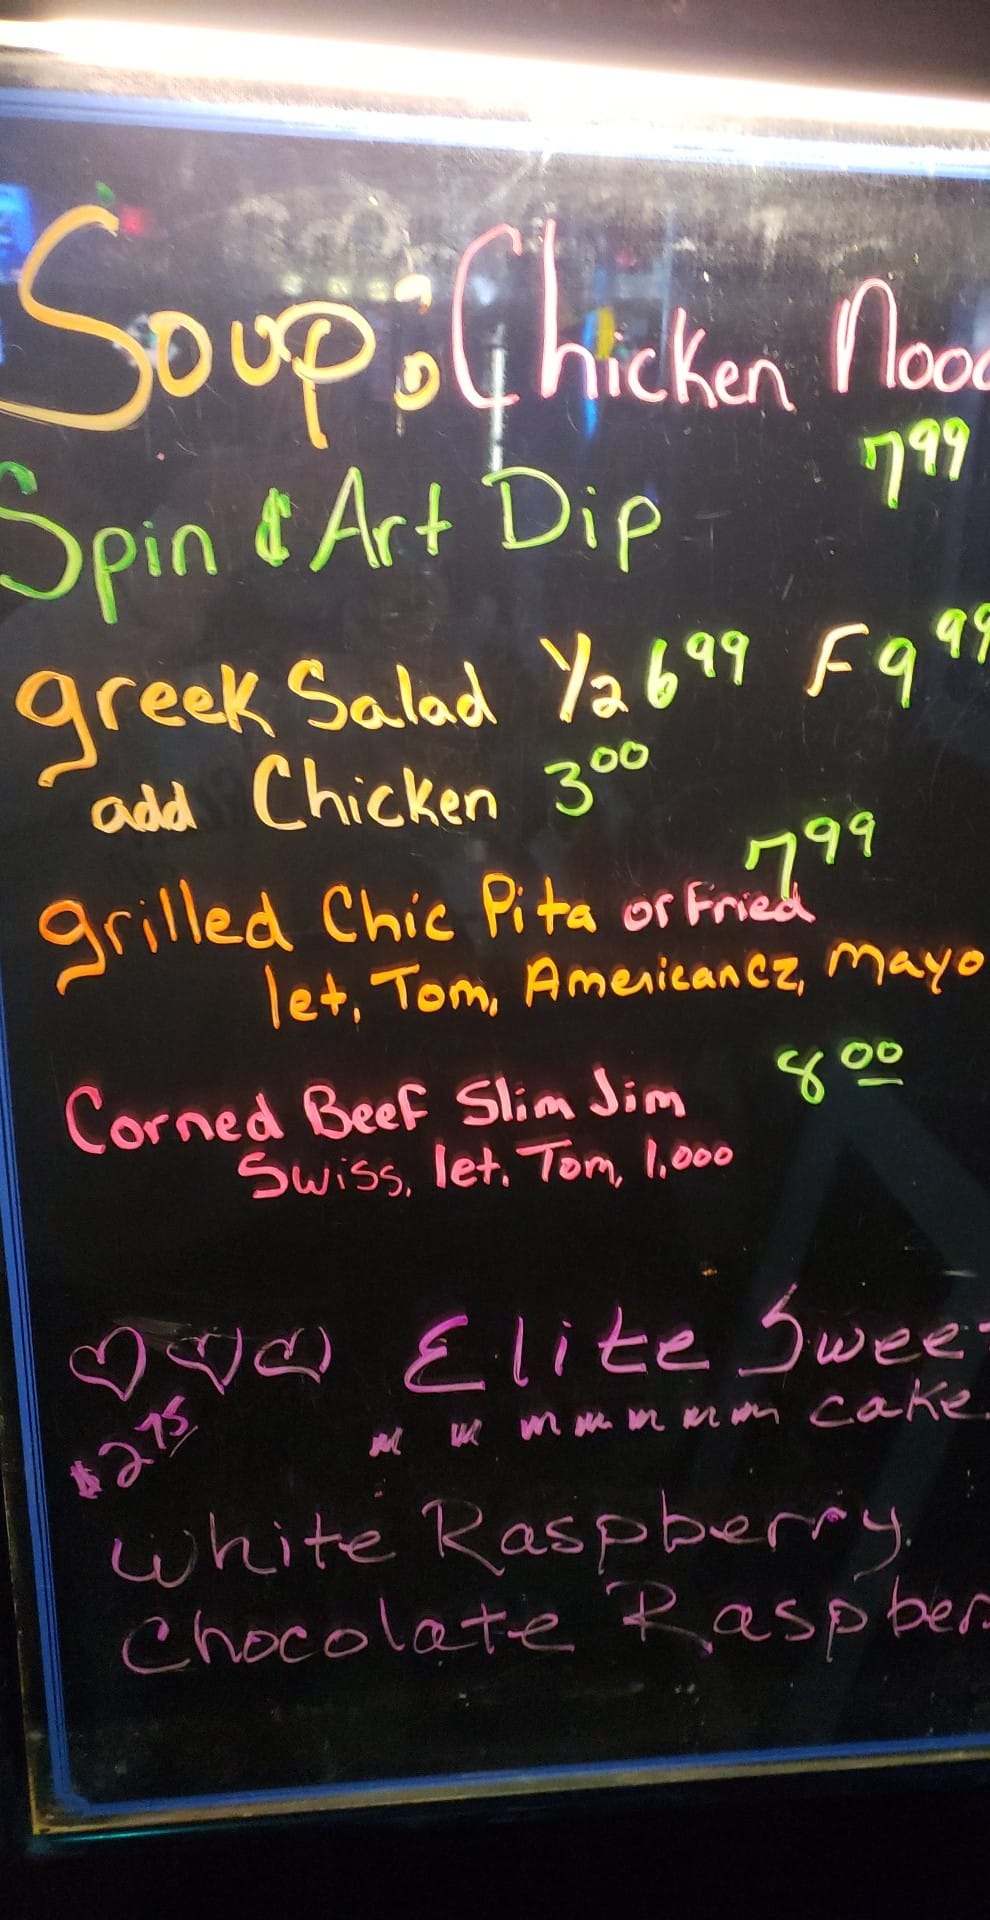 Soup: Chicken Nood
7.99
Spin & Art Dip
greek Salad 1/2 6.99 F 9.99
add Chicken 3.00
7.99
grilled Chic Pita or Fried
let, Tom, American cz, mayo
8.00
Corned Beef Slim Jim
Swiss, let, Tom, 1,000
Elite Sweet
$2.75 m m m m m m m cake
White Raspberry
Chocolate Raspber